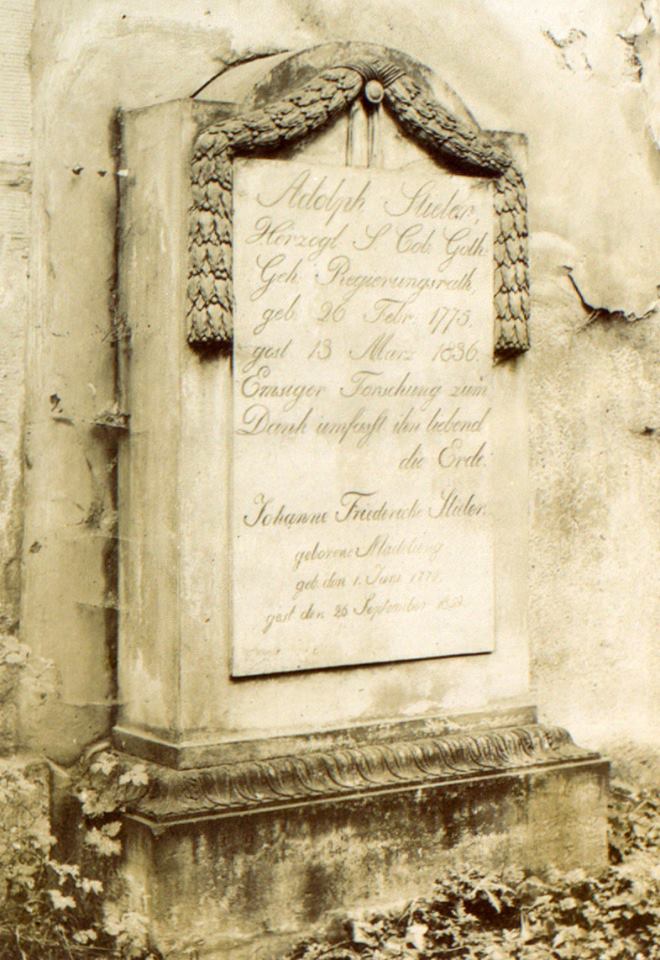 Adolph Stieler,
Herzogl. S. Cob. Goth.
Geh. Regierungsrath,
geb. 26 Febr. 1775.
gest 13 März 1836.
Emsiger Forschung zum
Dank umfasst ihn liebend
die Erde.
Johanne Friedericke Stieler.
geborene Madelung
geb. den 1. Juni
gest den 26 September